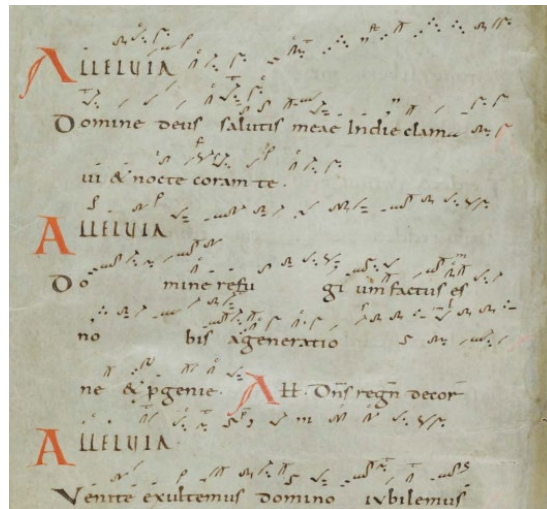 ALLELUIA
Domine deus salutis meae In die clama
ui & nocte coram te.
ALLELUIA
Do mine refu gi um factus es
no bis ageneratio
ne & pgenie. All. Dns regn decor
ALLELUIA
Venite exultemus domino iubilemus